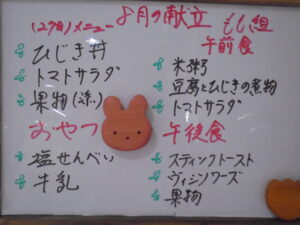 8月の献立
(27日)メニュー
ひじき丼
トマトサラダ
果物(凍)
おやつ
塩せんべい
牛乳
もも組
午前食
米粥
豆腐とひじきの煮物
トマトサラダ
午後食
スティックトースト
ヴィシソワーズ
果物